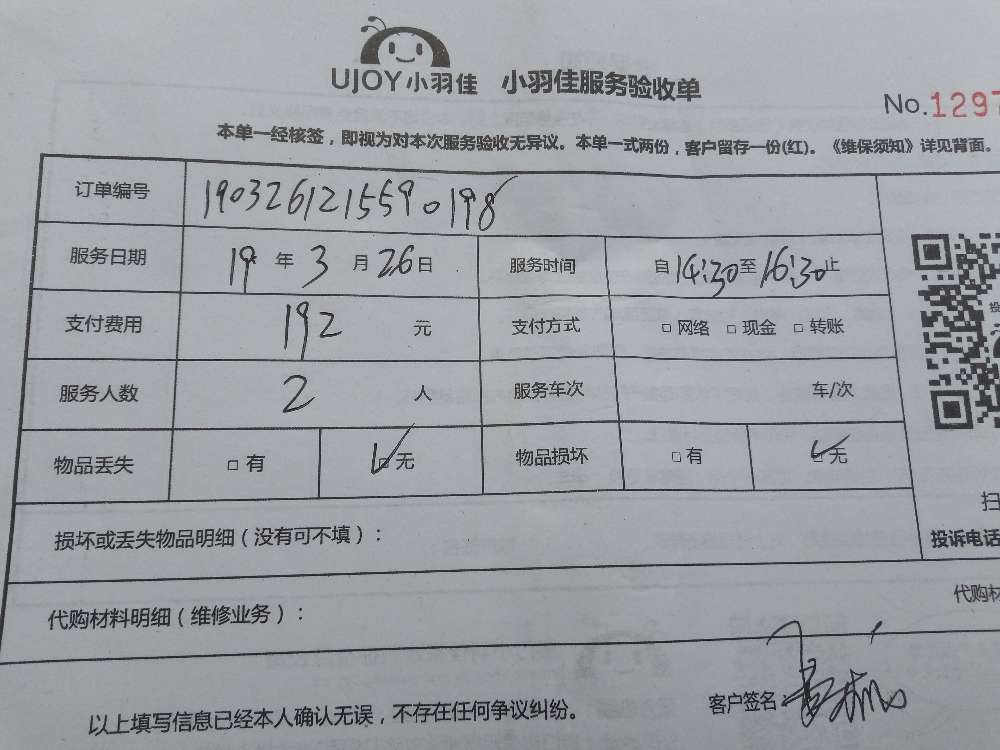 UJOY小羽佳 小羽佳服务验收单
No.1297
本单一经核签，即视为对本次服务验收无异议。本单一式两份，客户留存一份(红)。《维保须知》详见背面。
订单编号 1903261215590198
服务日期 19 年 3 月 26 日 服务时间 自 14:30 至 16:30 止
支付费用 192 元 支付方式 □ 网络 □ 现金 □ 转账
服务人数 2 人 服务车次 车/次
物品丢失 □ 有 ☑ 无 物品损坏 □ 有 ☑ 无
扫
损坏或丢失物品明细（没有可不填）： 投诉电话
代购材料明细（维修业务）： 代购材
以上填写信息已经本人确认无误，不存在任何争议纠纷。 客户签名：